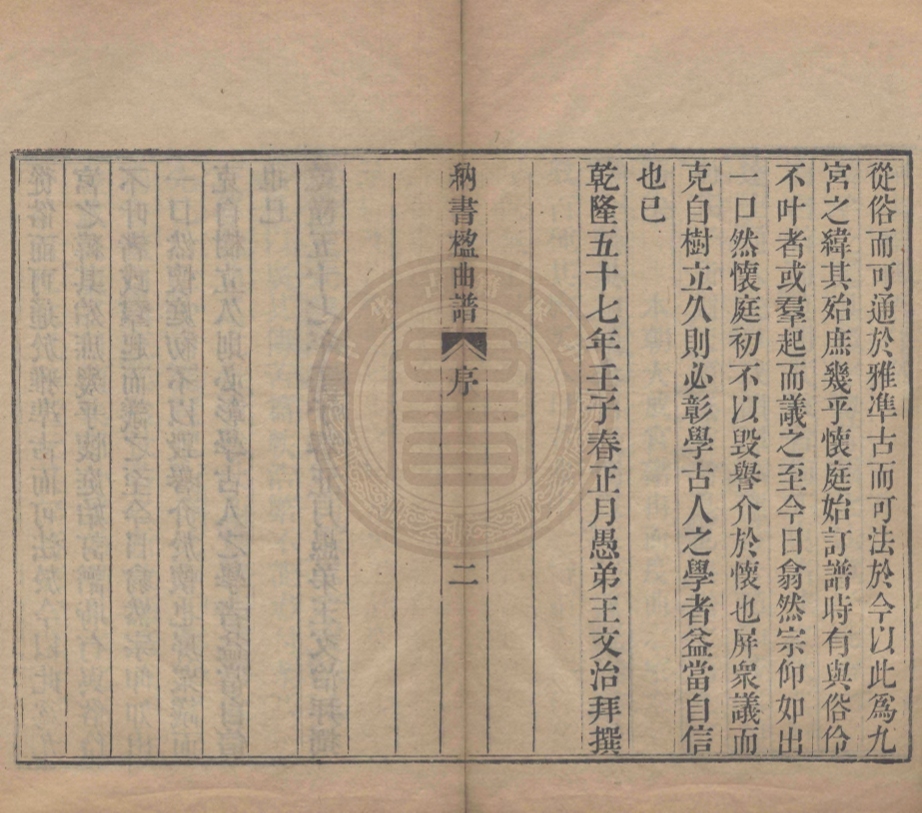 從俗而可通於雅準古而可法於今以此爲九
宮之緯其殆庶幾乎懷庭始訂譜時有與俗伶
不叶者或羣起而議之至今日翕然宗仰如出
一口然懷庭初不以毀譽介於懷也屏衆議而
克自樹立久則必彰學古人之學者益當自信
也已
乾隆五十七年壬子春正月愚弟王文治拜撰
納書楹曲譜 序 二